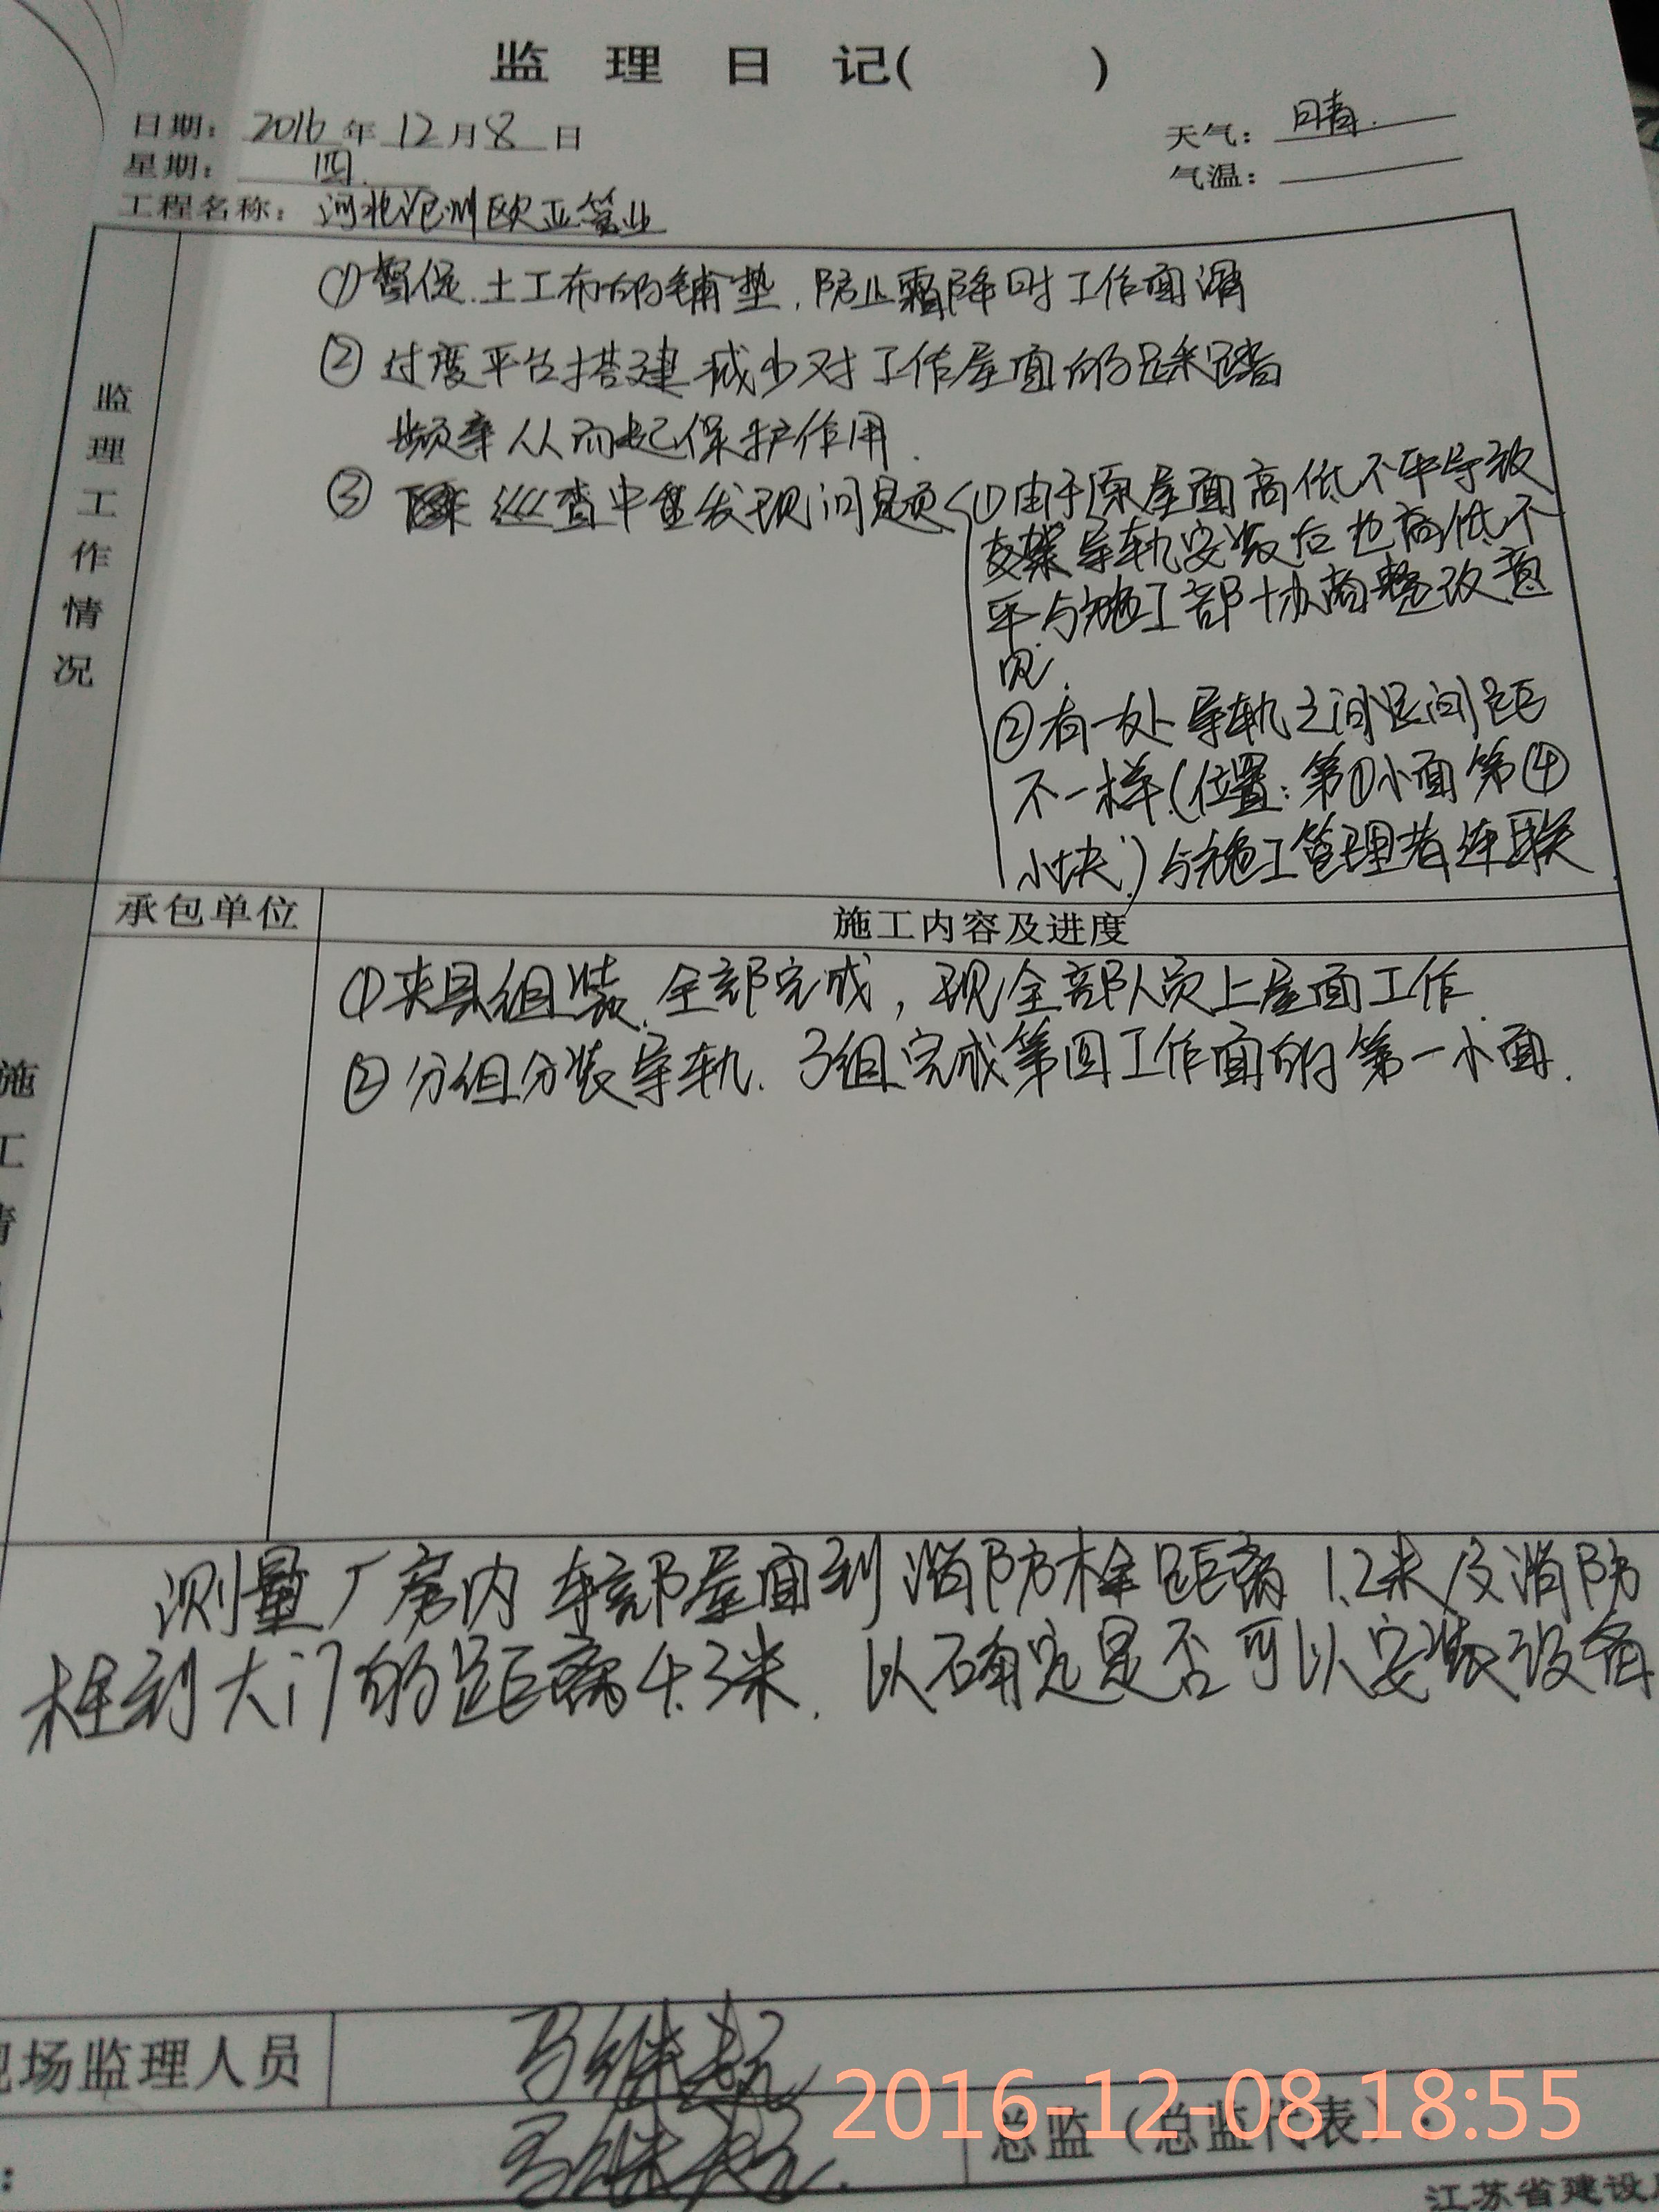 监 理 日 记( )
日期: 2016 年 12 月 8 日
天气: 晴.
星期: 四.
气温:
工程名称: 河北沧州欧亚管业
监理工作情况
① 督促.土工布的铺垫.防止霜降时工作面滑
② 过度平台搭建减少对工作屋面的踩踏
频率从而起保护作用.
③ 巡查中发现问题
①由于原屋面高低不平导致
支架导轨安装后也高低不
平与施工部协商整改意
见.
②有一处导轨之间间距
不一样(位置:第①小面第④
小块)与施工管理者连联
承包单位
施工内容及进度
施工情
①夹具组装.全部完成,现全部人员上屋面工作.
②分组分装导轨.3组完成第四工作面的第一小面.
测量厂房内 东部屋面到消防栓距离1.2米及消防
栓到大门的距离4.3米.以确定是否可以安装设备
现场监理人员
马继
马继
总监(总监代表):
2016-12-08 18:55
江苏省建设